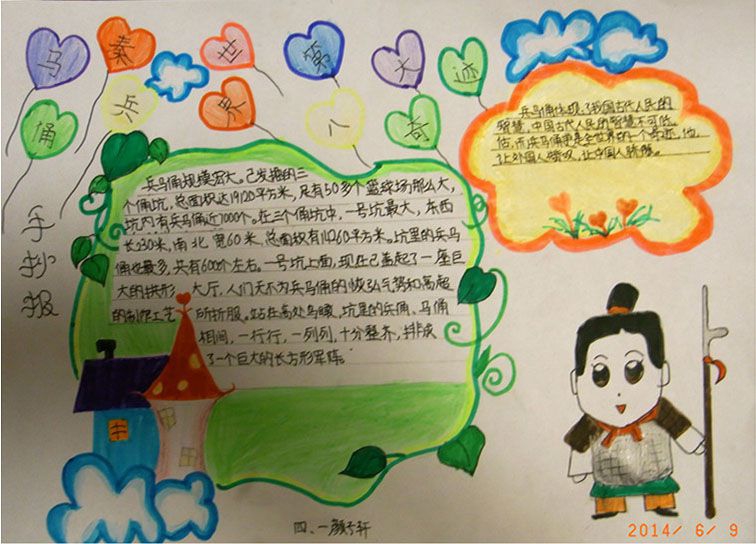 马 秦 世 第 大 迹
俑 兵 界 八 奇
手抄报
兵马俑规模宏大。已发掘的三
个俑坑，总面积达19120平方米，足有50多个篮球场那么大，
坑内有兵马俑近1000个。在三个俑坑中，一号坑最大，东西
长230米，南北宽60米，总面积有14260平方米。坑里的兵马
俑也最多，共有6000个左右。一号坑上面，现在已盖起了一座巨
大的拱形 大厅，人们无不为兵马俑的恢弘气势和高超
的制作工艺 所折服。站在高处鸟瞰，坑里的兵俑、马俑
相间，一行行，一列列，十分整齐，排成
了一个巨大的长方形军阵。
兵马俑体现了我国古代人民的
智慧，中国古代人民的智慧不可低
估，而兵马俑更是全世界的一个奇迹，他，
让外国人赞叹，让中国人骄傲。
四、一颜子轩
2014/ 6/ 9